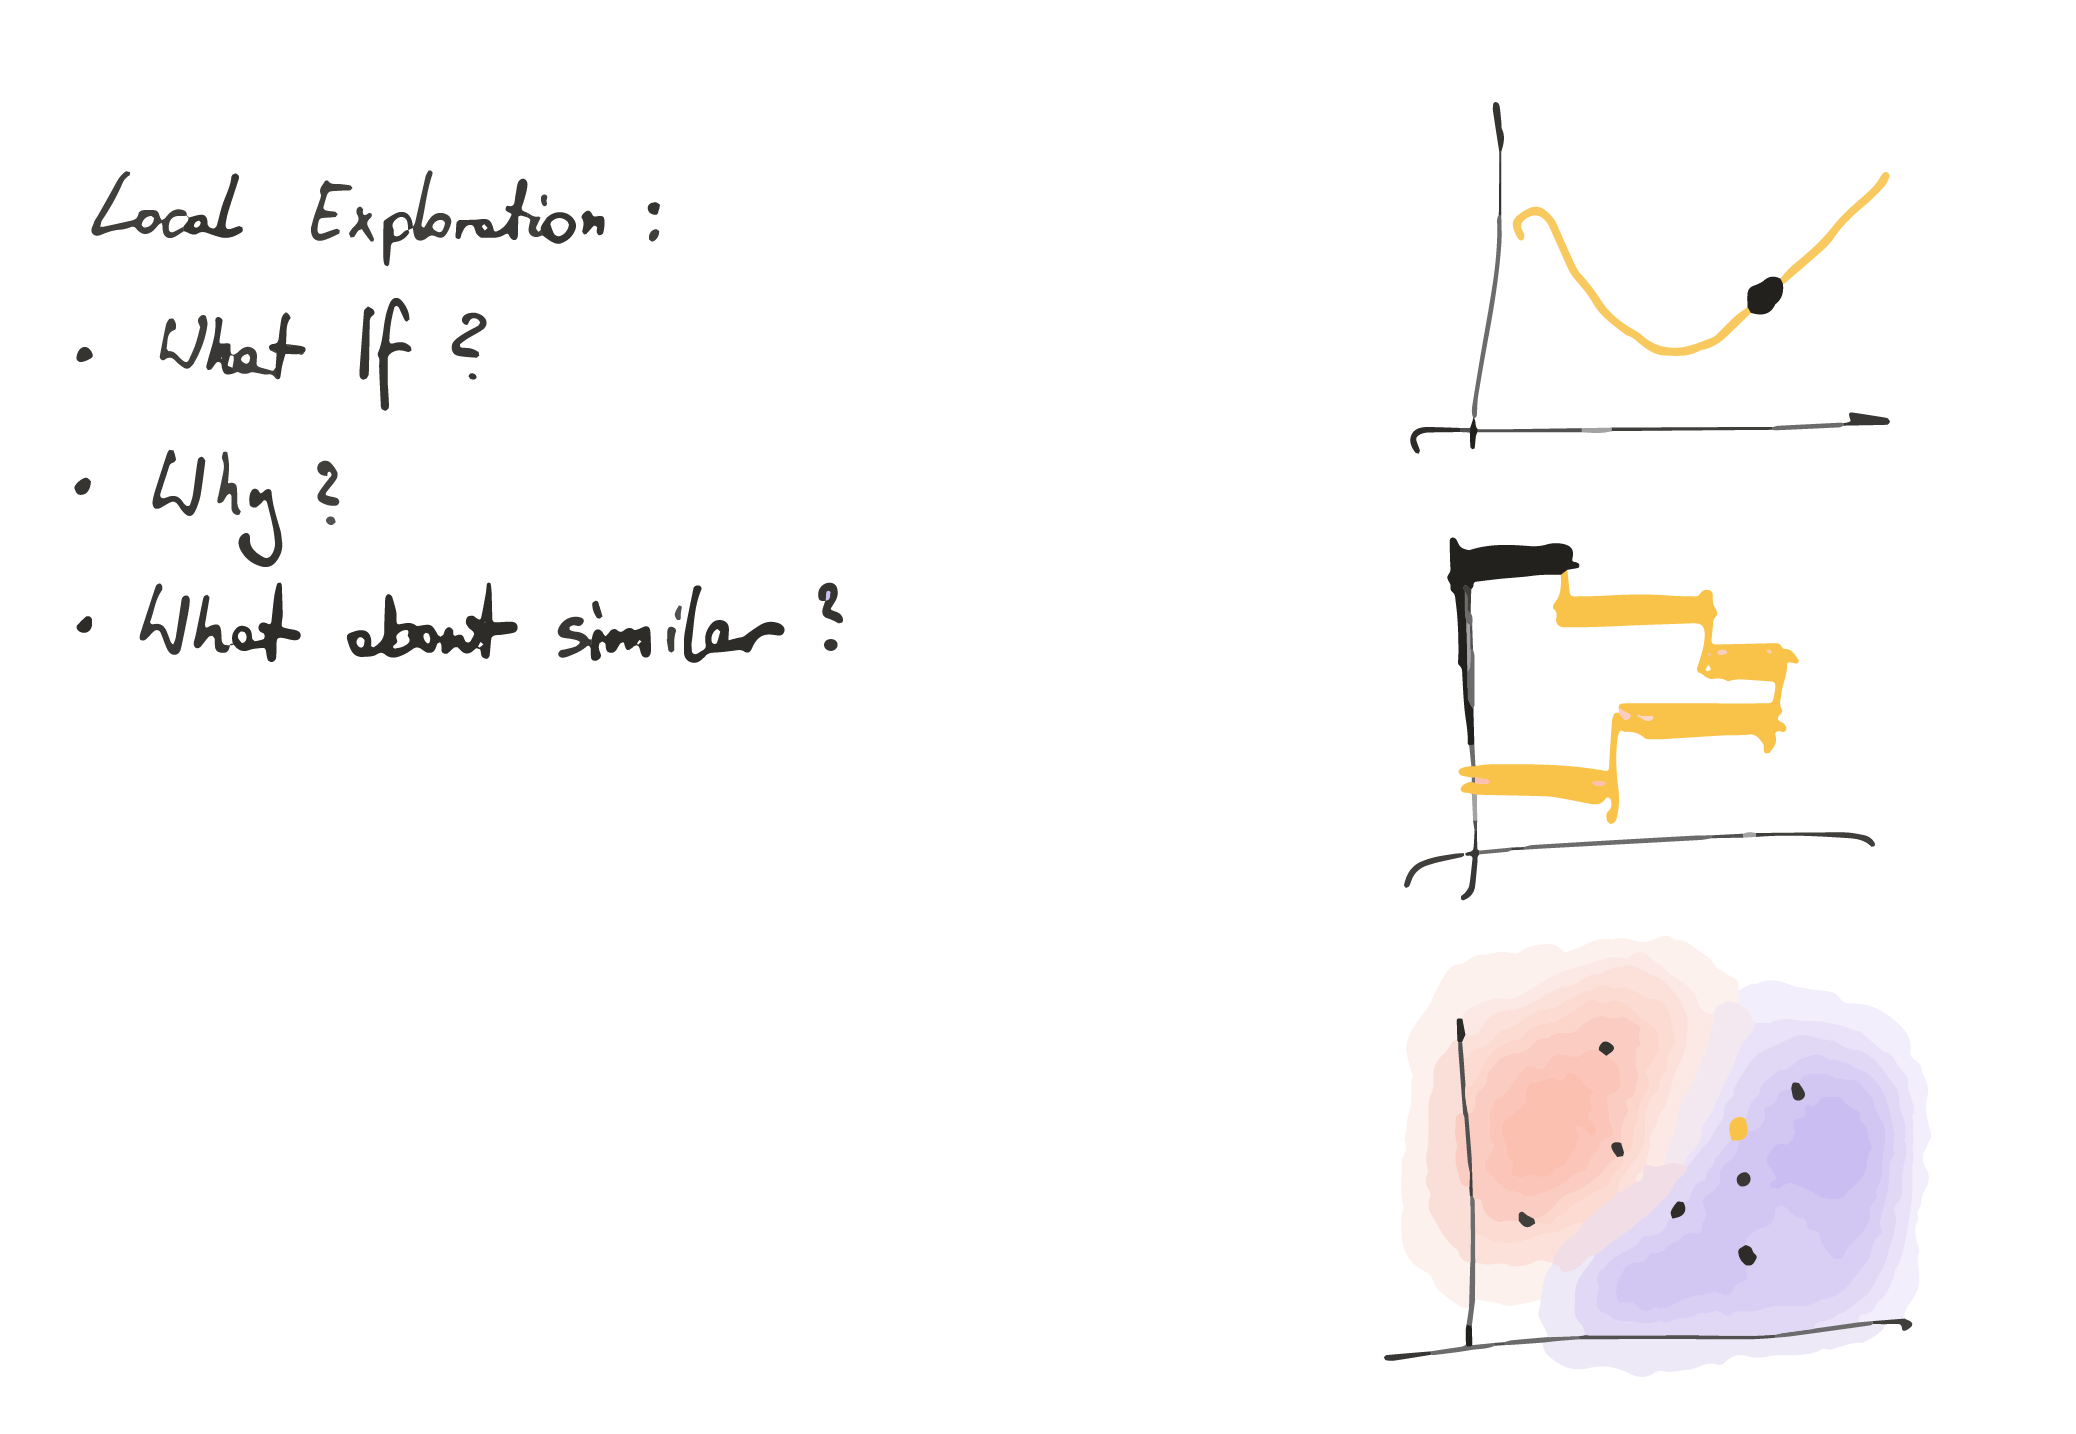 Local Exploration :
• What If ?
• Why ?
• What about similar ?